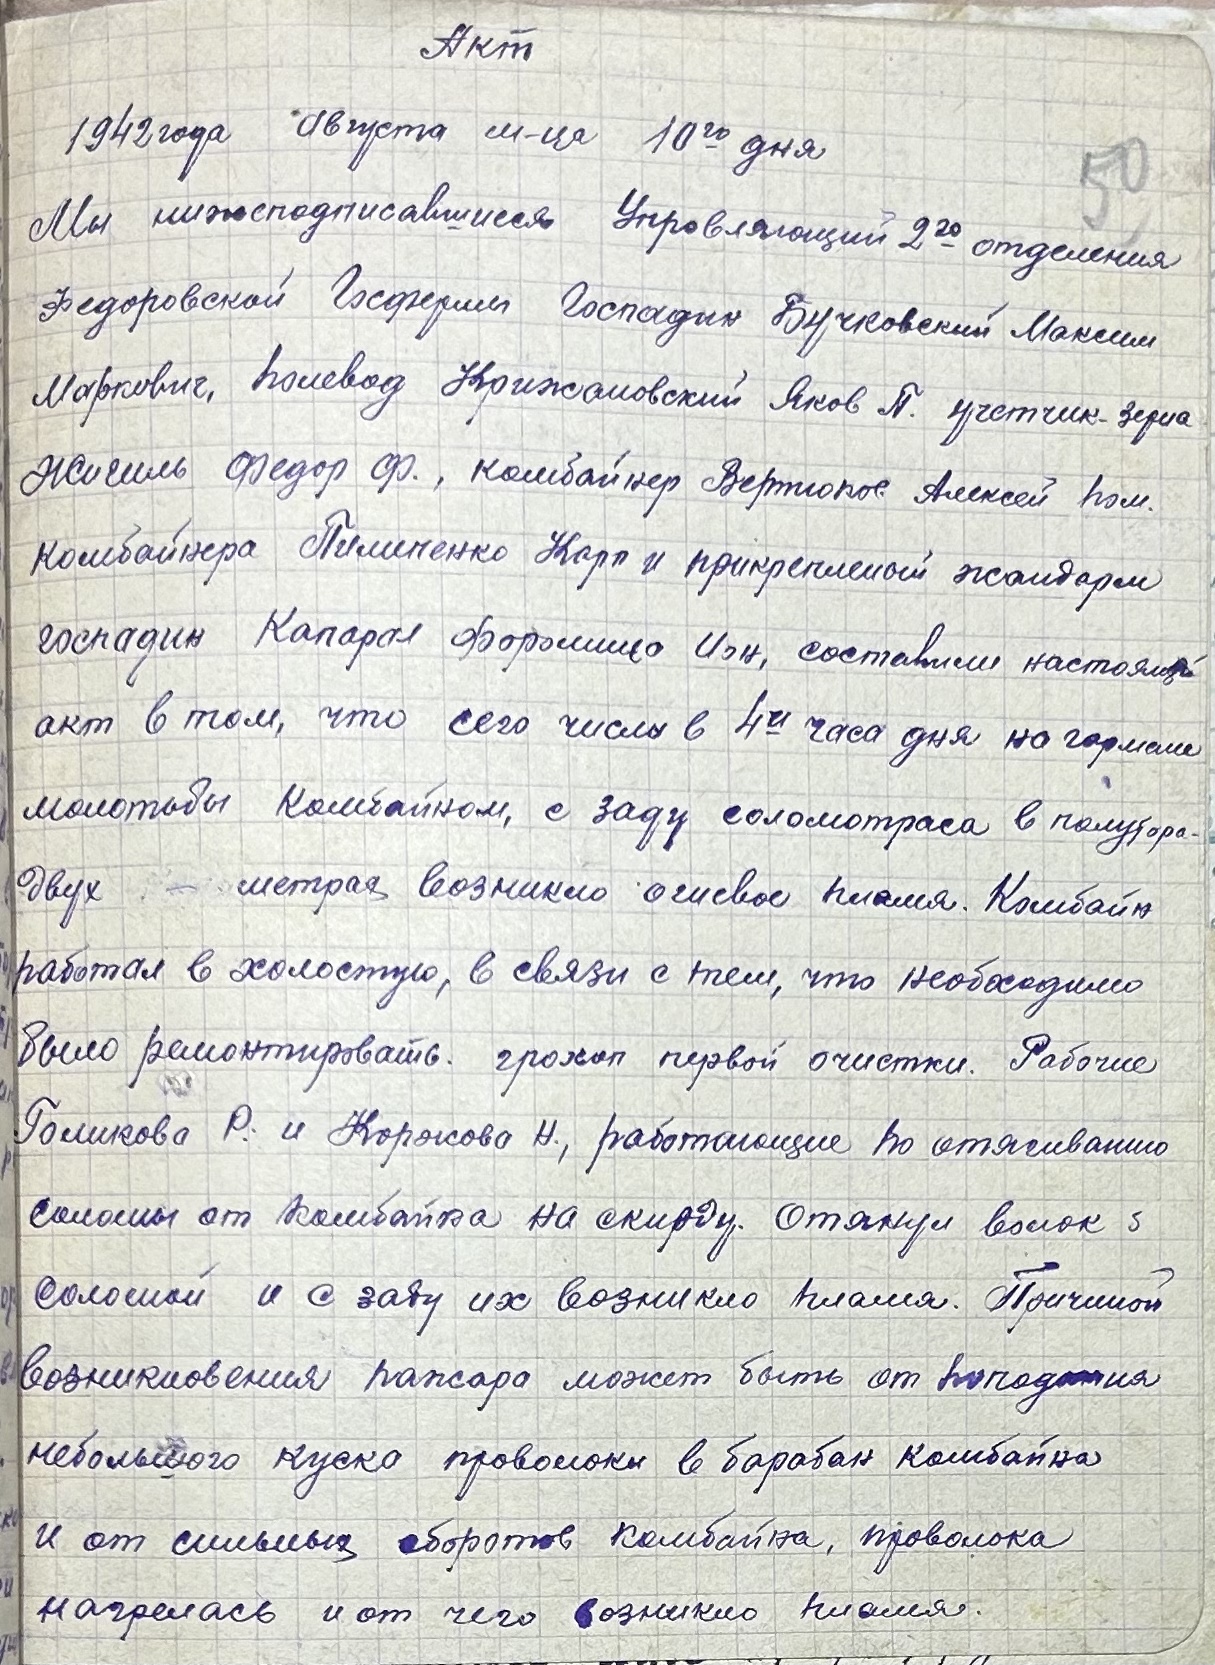 Акт
1942 года августа м-ца 10го дня
50
Мы нижеподписавшиеся Упровляющий 2го отделения
Федоровской Госфермы Госпадин Бучковский Максим
Маркович, полевод Крижановский Яков П. учетчик-зерна
Жигиль Федор Ф., комбайнер Вертипос Алексей пом.
комбайнера Пилипенко Карп и прикрепленый жандарм
госпадин Капорал Форомица Ион, составили настоящий
акт в том, что сего числа в 4и часа дня на гармане
молотьбы комбайном, с заду соломотраса в полутора-
двух - метрах возникло огневое пламя. Комбайн
работал в холостую, в связи с тем, что необходимо
было ремонтировать. грохоп первой очистки. Рабочие
Голикова Р. и Коржова Н., работающие по отягиванию
соломы от комбайна на скирду. Отянул волок с
соломой и с заду их возникло пламя. Причиной
возникновения пажара может быть от попадания
небольшого куска проволоки в барабан комбайна
и от сильных оборотов комбайна, проволока
нагрелась и от чего возникло пламя.